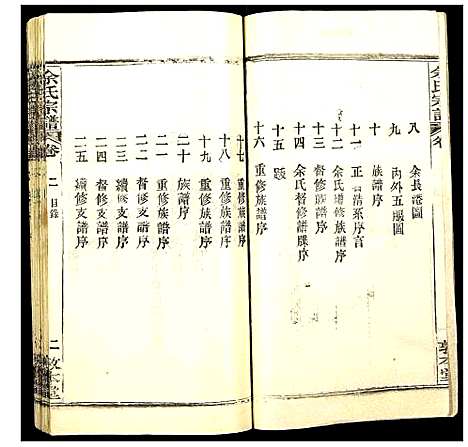 余氏宗譜 卷
八 余長 圖
九 內外五服圖
十 族譜序
十一 正 清系序言
十二 余氏 修族譜序
十三 督修族譜序
十四 余氏督修譜牒序
十五 跋
十六 重修族譜序
敦本堂
十七 重修族譜序
十八 重修族譜序
十九 重修族譜序
二十 族譜序
二一 重修族譜序
二二 督修支譜序
二三 續修支譜序
二四 督修支譜序
二五 續修支譜序
余氏宗譜 卷
二 目錄
二 敦本堂